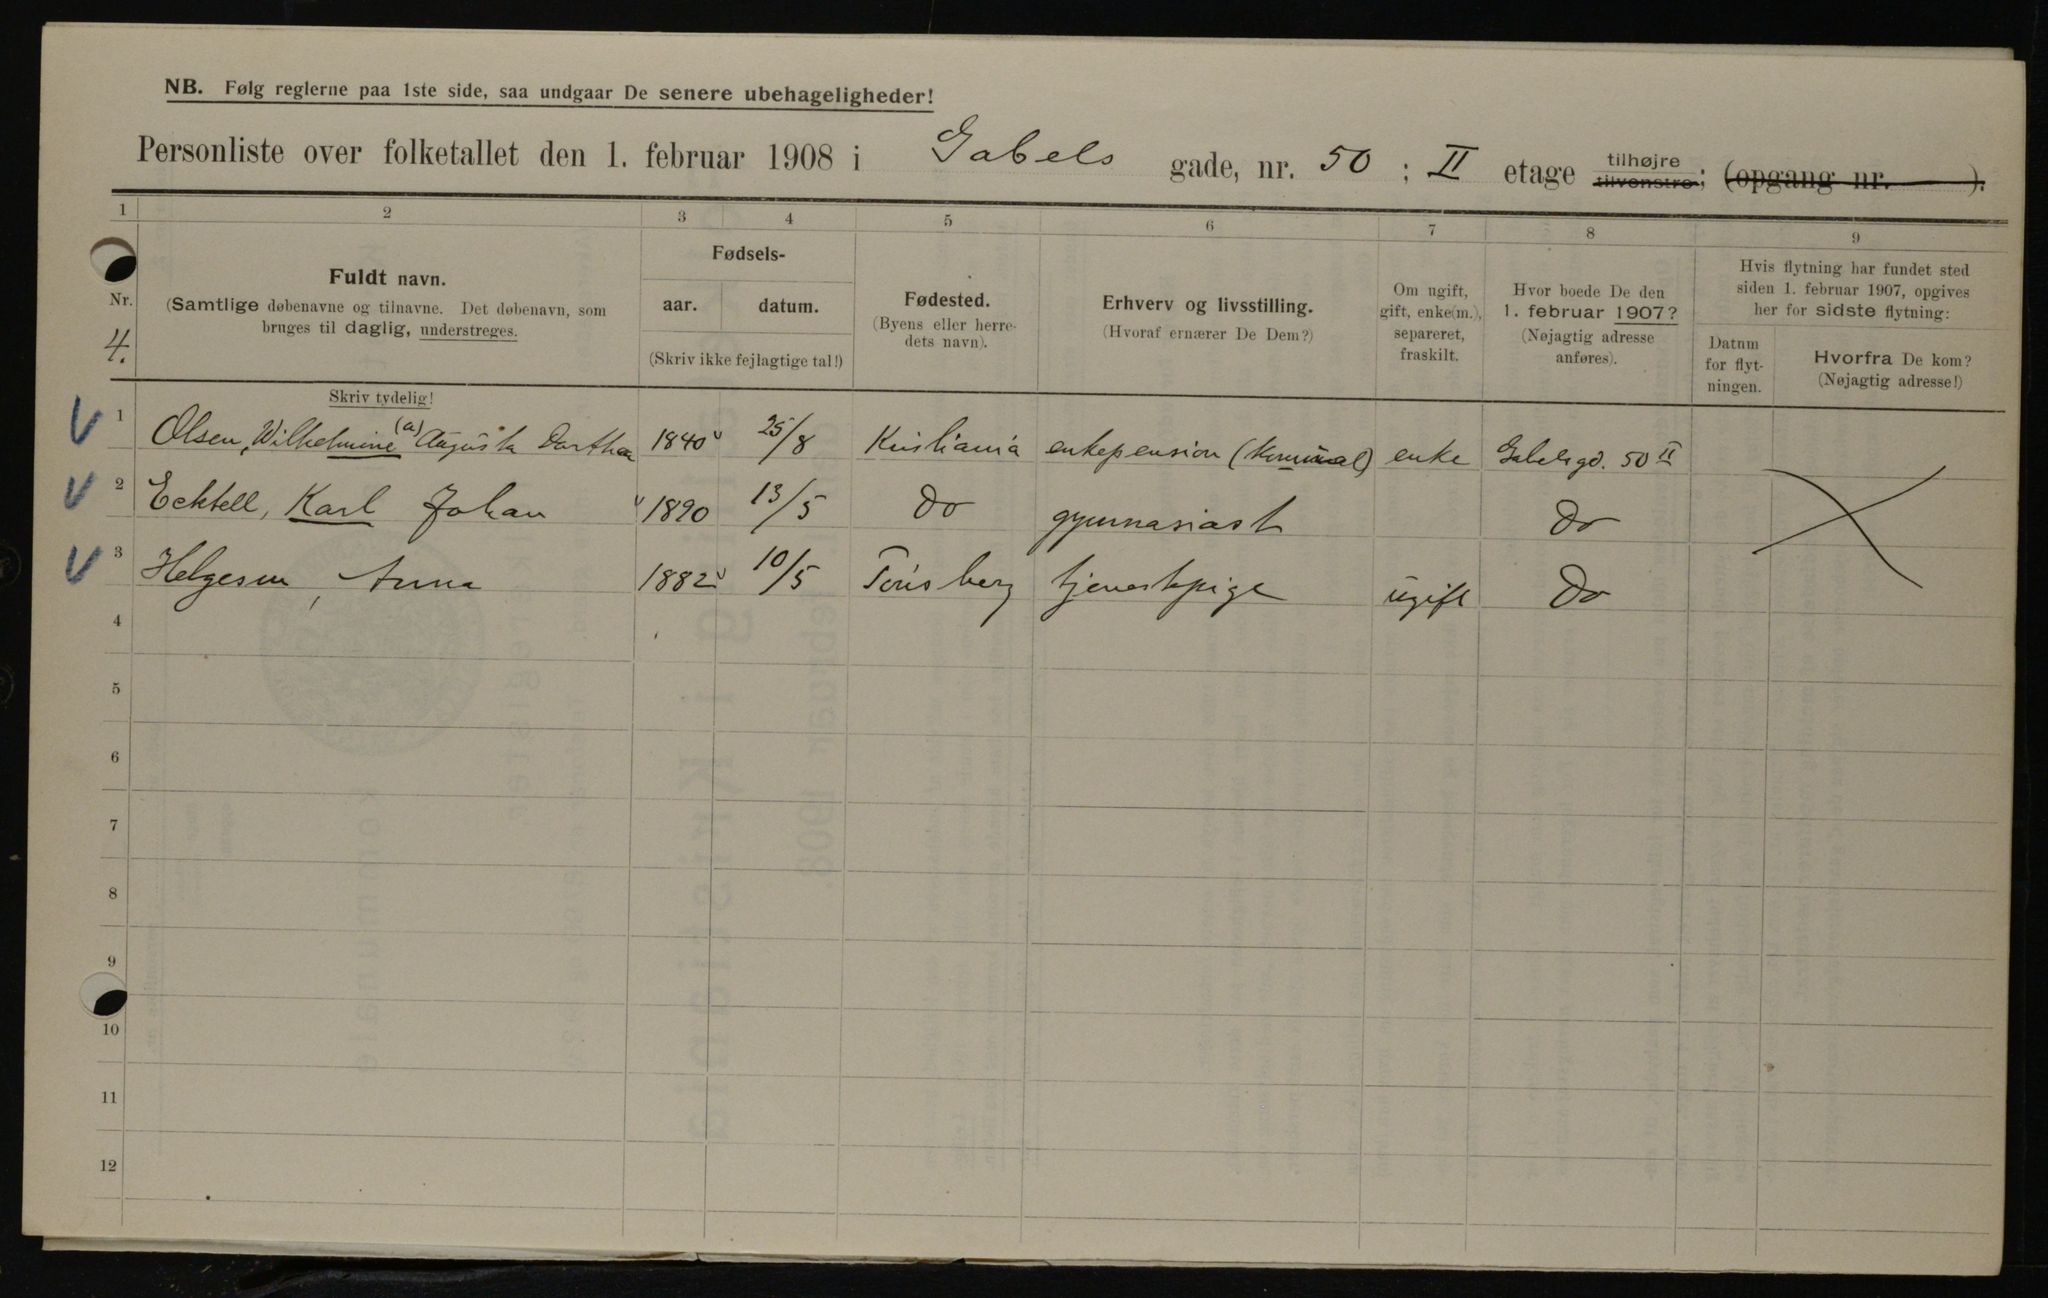 NB. Følg reglerne paa 1ste side, saa undgaar De senere ubehageligheder!
Personliste over folketallet den 1. februar 1908 i Gabels gade, nr. 50 ; II etage tilhøjre tilvenstre; (opgang nr. ).
1 2 3 4 5 6 7 8 9
Nr.
4.
Fuldt navn.
(Samtlige døbenavne og tilnavne. Det døbenavn, som
bruges til daglig, understreges.
Skriv tydelig!
Fødsels-
aar. datum.
(Skriv ikke fejlagtige tal!)
Fødested.
(Byens eller herre-
dets navn).
Erhverv og livsstilling.
(Hvoraf ernærer De Dem?)
Om ugift,
gift, enke(m.),
separeret,
fraskilt.
Hvor boede De den
1. februar 1907?
(Nøjagtig adresse
anføres).
Hvis flytning har fundet sted
siden 1. februar 1907, opgives
her for sidste flytning:
Datum
for flyt-
ningen.
Hvorfra De kom?
(Nøjagtig adresse!)
1 Olsen, Wilhelmine (a) Augusta Dorthea 1840 25/8 Kristiania enkepension (komunal) enke Gabelsgd. 50 II
2 Ecktell, Karl Johan 1890 13/5 Do gymnasiast Do
3 Helgesen, Anna 1882 10/5 Tønsberg tjenestepige ugift Do
4
5
6
7
8
9
10
11
12